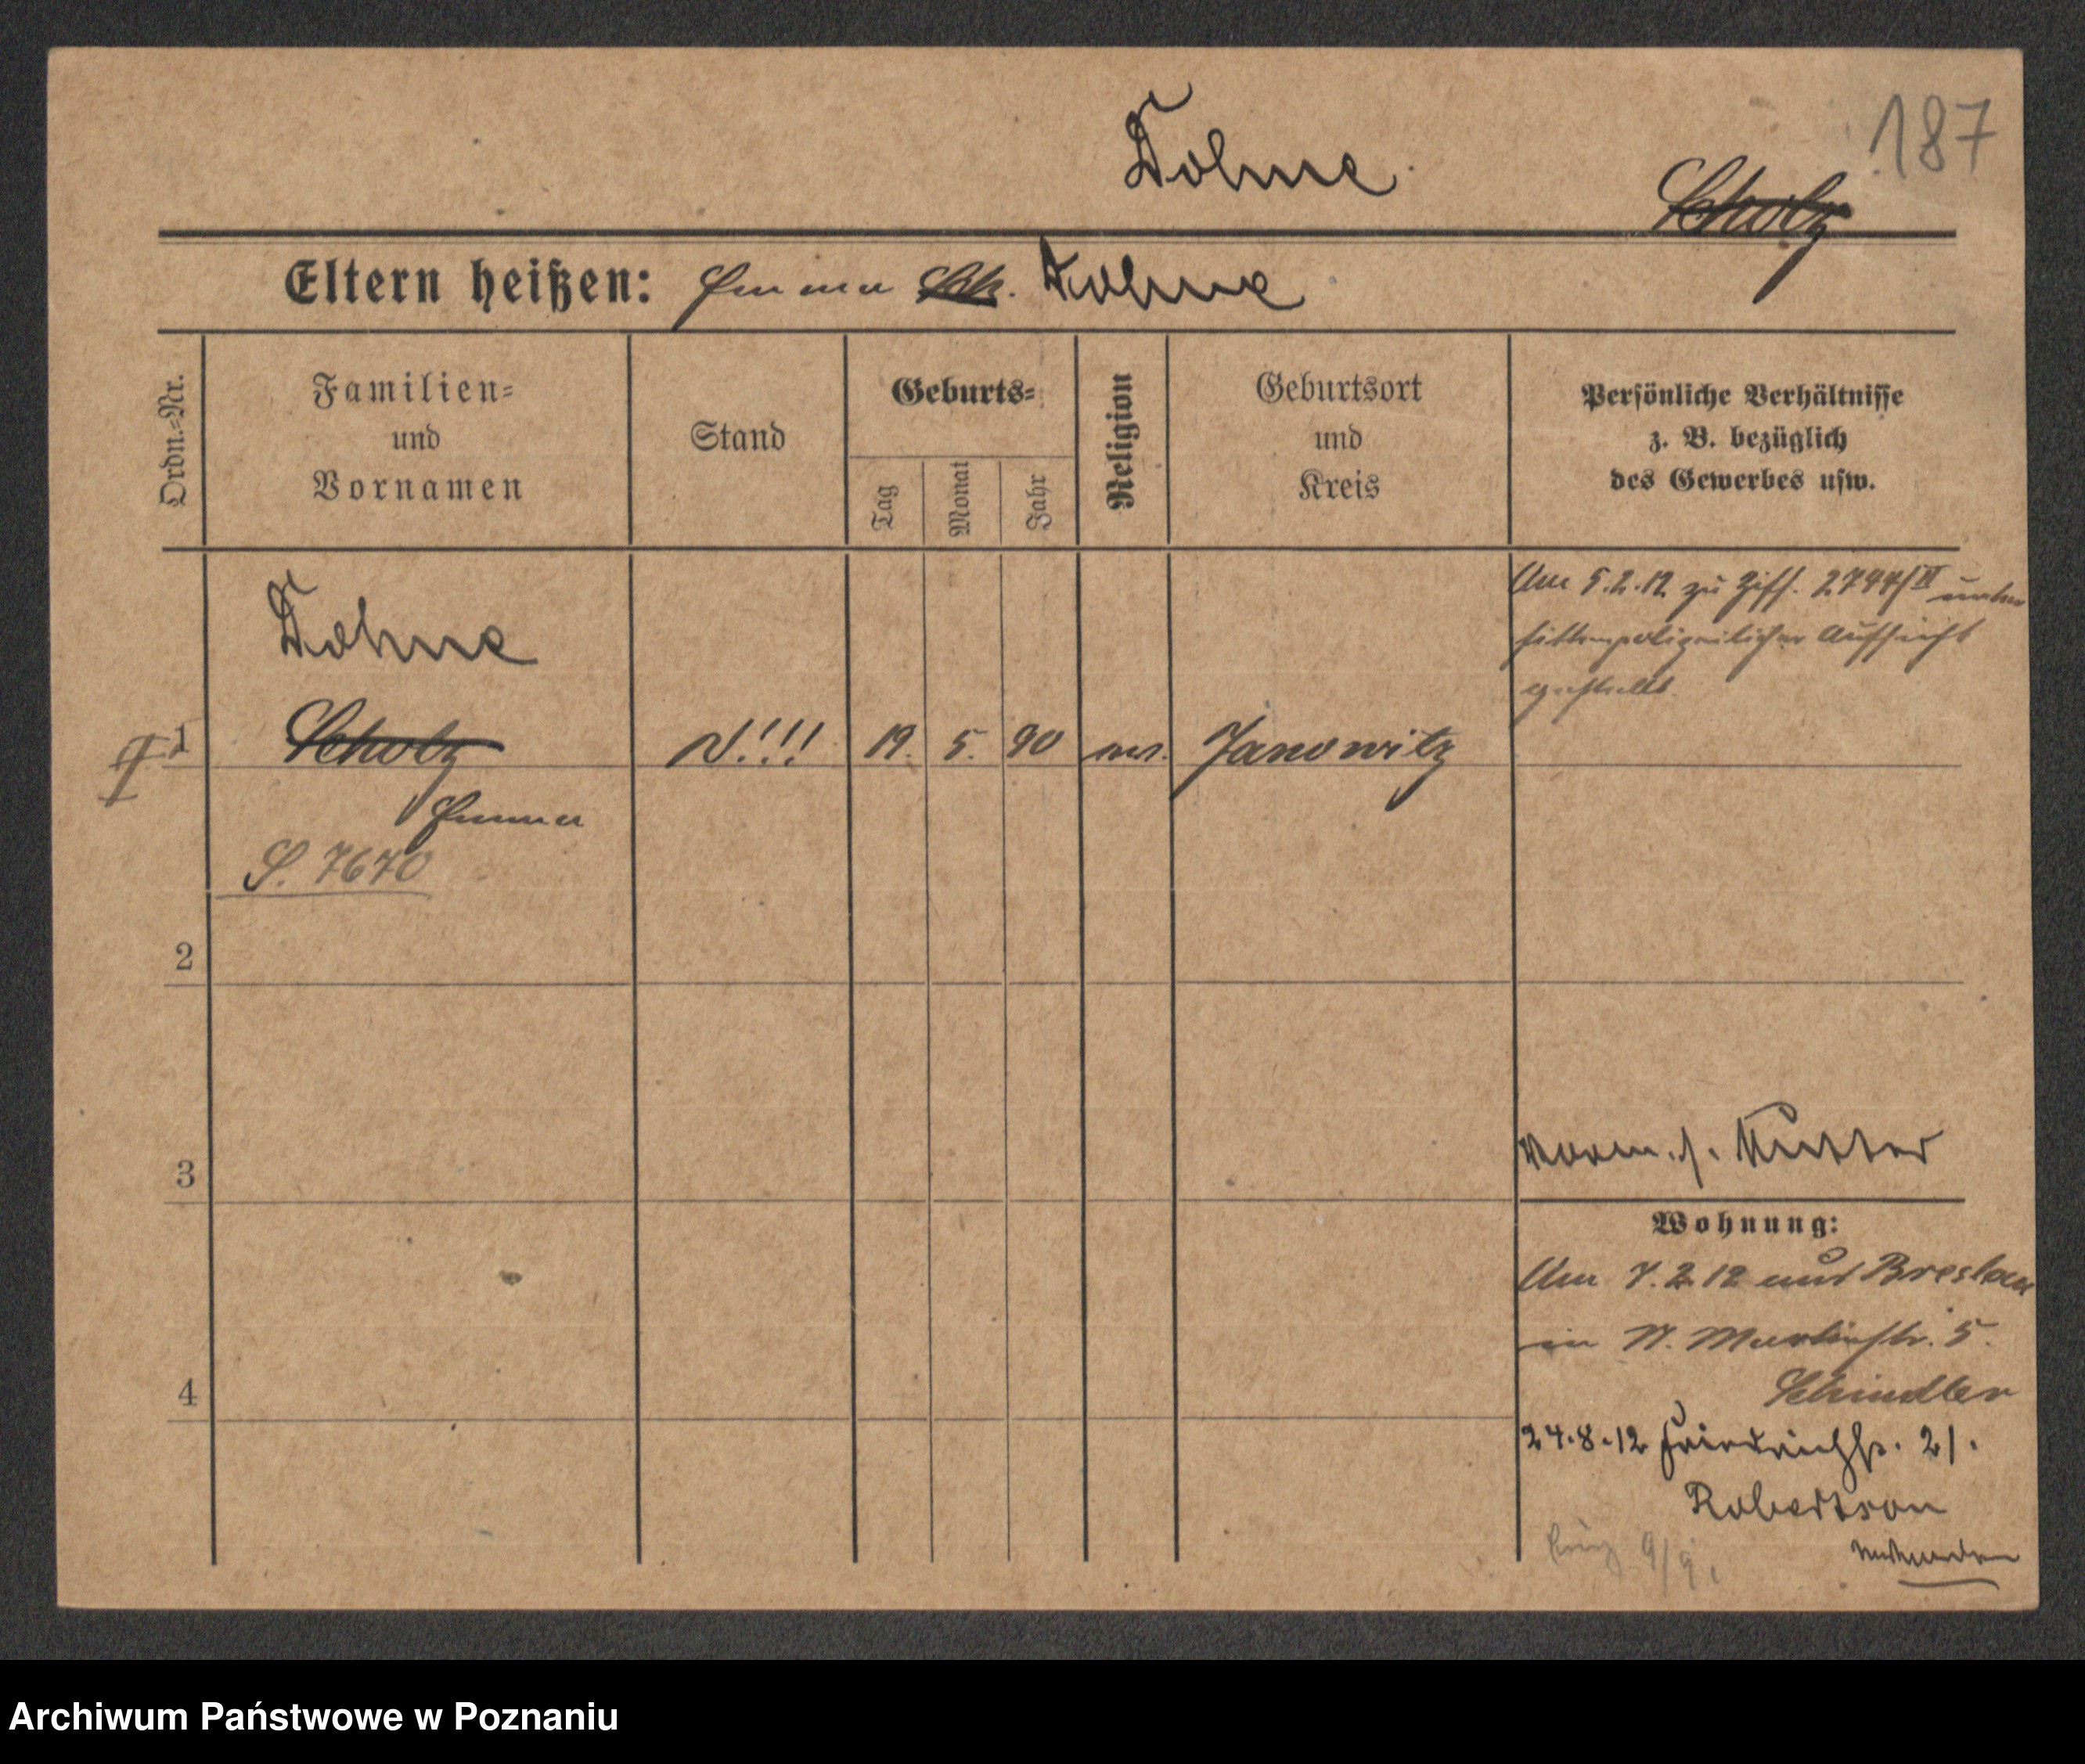 187
Dohme
Scholz
Eltern heißen: Emma Sch. Dohme
Ordn.-Nr.
Familien-
und
Vornamen
Stand
Geburts-
Tag
Monat
Jahr
Religion
Geburtsort
und
Kreis
Persönliche Verhältnisse
z. B. bezüglich
des Gewerbes usw.
Am 5.2.12 zu Ziff. 2744/II unter
sittenpolizeilicher Aufsicht
gestellt
Dohme
1 Scholz N!!! 19. 5. 90 Janowitz
Emma
S. 7670
2
3
Vorm. s. Mutter
Wohnung:
Am 7.2.12 aus Breslau
in Martinstr. 5.
4
Schindler
24.8.12 Friedrichstr. 21.
Robertson
9/9.
Archiwum Państwowe w Poznaniu